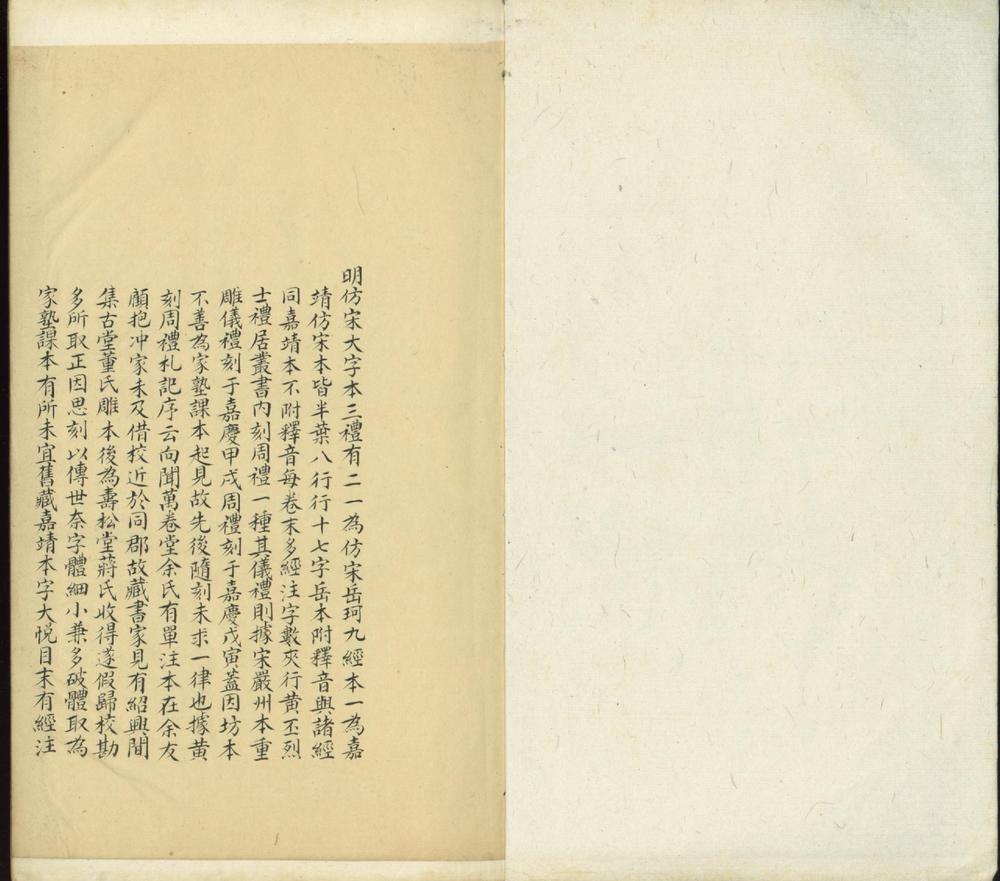 明仿宋大字本三禮有二一為仿宋岳珂九經本一為嘉
靖仿宋本皆半葉八行行十七字岳本附釋音與諸經
同嘉靖本不附釋音每卷末多經注字數夾行黄丕烈
士禮居叢書内刻周禮一種其儀禮則據宋嚴州本重
雕儀禮刻于嘉慶甲戌周禮刻于嘉慶戊寅蓋因坊本
不善為家塾課本起見故先後隨刻未求一律也據黄
刻周禮札記序云向聞萬卷堂余氏有單注本在余友
顧抱冲家未及借校近於同郡故藏書家見有紹興間
集古堂董氏雕本後為壽松堂蔣氏收得遂假歸校勘
多所取正因思刻以傳世奈字體細小兼多破體取為
家塾課本有所未宜舊藏嘉靖本字大悦目末有經注